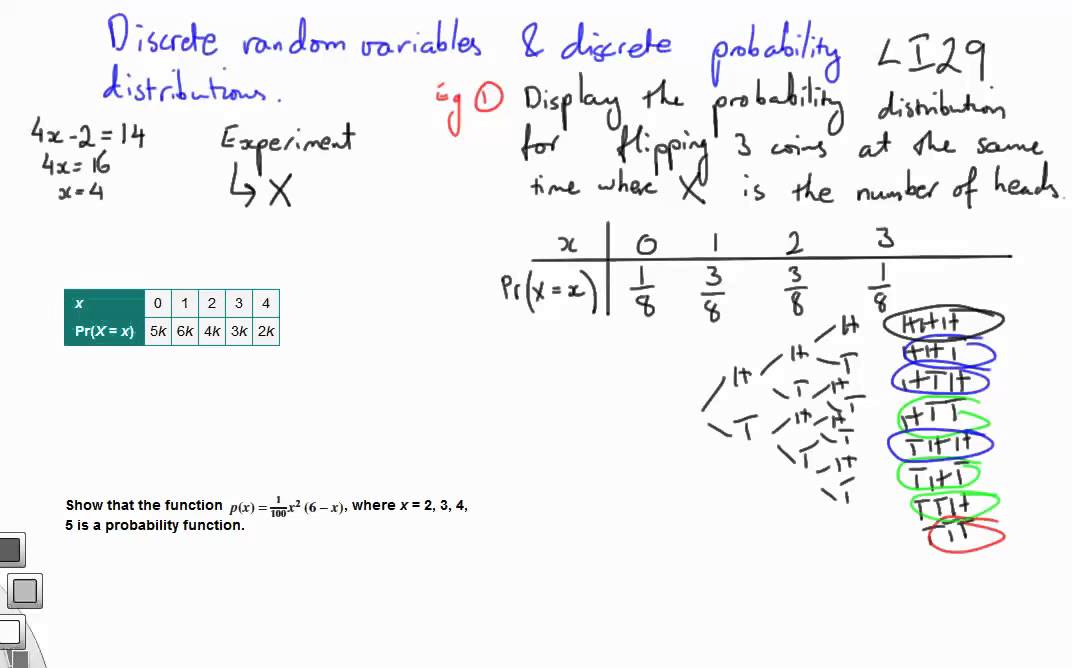 Discrete random variables & discrete probability
distributions.
LI29
4x-2=14
4x=16
x=4
Experiment
↳ X
Eg ① Display the probability distribution
for flipping 3 coins at the same
time where X is the number of heads.
x 0 1 2 3
Pr(X=x) 1/8 3/8 3/8 1/8
x 0 1 2 3 4
Pr(X = x) 5k 6k 4k 3k 2k
H
H
T
H
T
H
T
T
H
H
T
T
H
T
HHH
HHT
HTH
HTT
THH
THT
TTH
TTT
Show that the function p(x) = 1/100 x² (6 – x), where x = 2, 3, 4,
5 is a probability function.